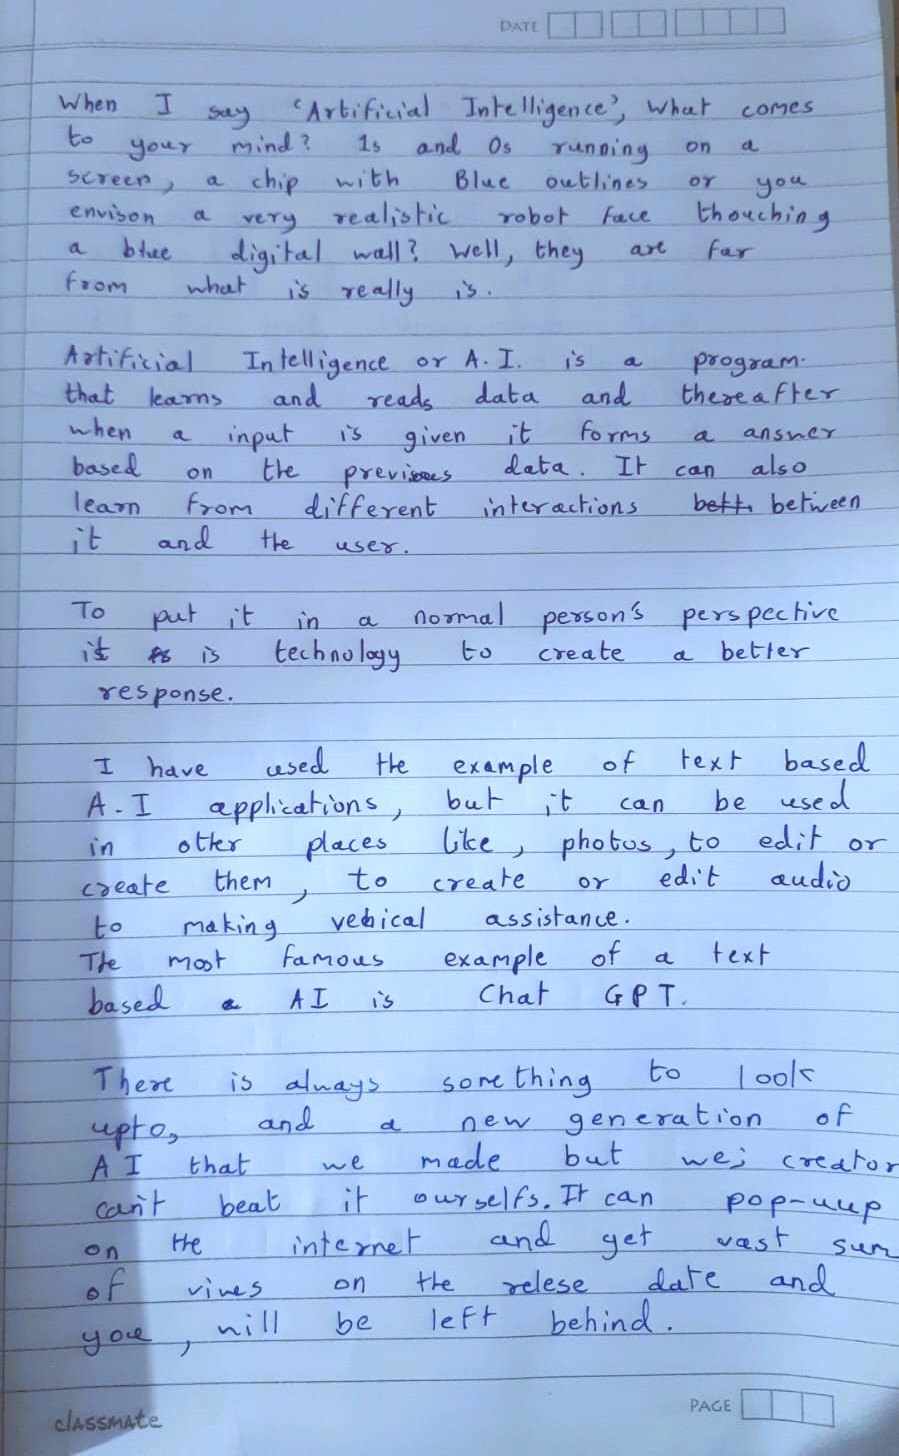 DATE
When I say 'Artificial Intelligence', what comes
to your mind? 1s and 0s running on a
screen, a chip with Blue outlines or you
envison a very realistic robot face thouching
a blue digital wall? Well, they are far
from what is really is.
Artificial Intelligence or A.I. is a program
that learns and reads data and thereafter
when a input is given it forms a answer
based on the previous data. It can also
learn from different interactions bett. between
it and the user.
To put it in a normal person's perspective
it is technology to create a better
response.
I have used the example of text based
A.I applications, but it can be used
in other places like, photos, to edit or
create them, to create or edit audio
to making vehical assistance.
The most famous example of a text
based a AI is Chat GPT.
There is always something to look
upto, and a new generation of
AI that we made but we; creator
can't beat it ourselfs. It can pop-uup
on the internet and get vast sum
of vives on the relese date and
you, will be left behind.
classmate
PAGE